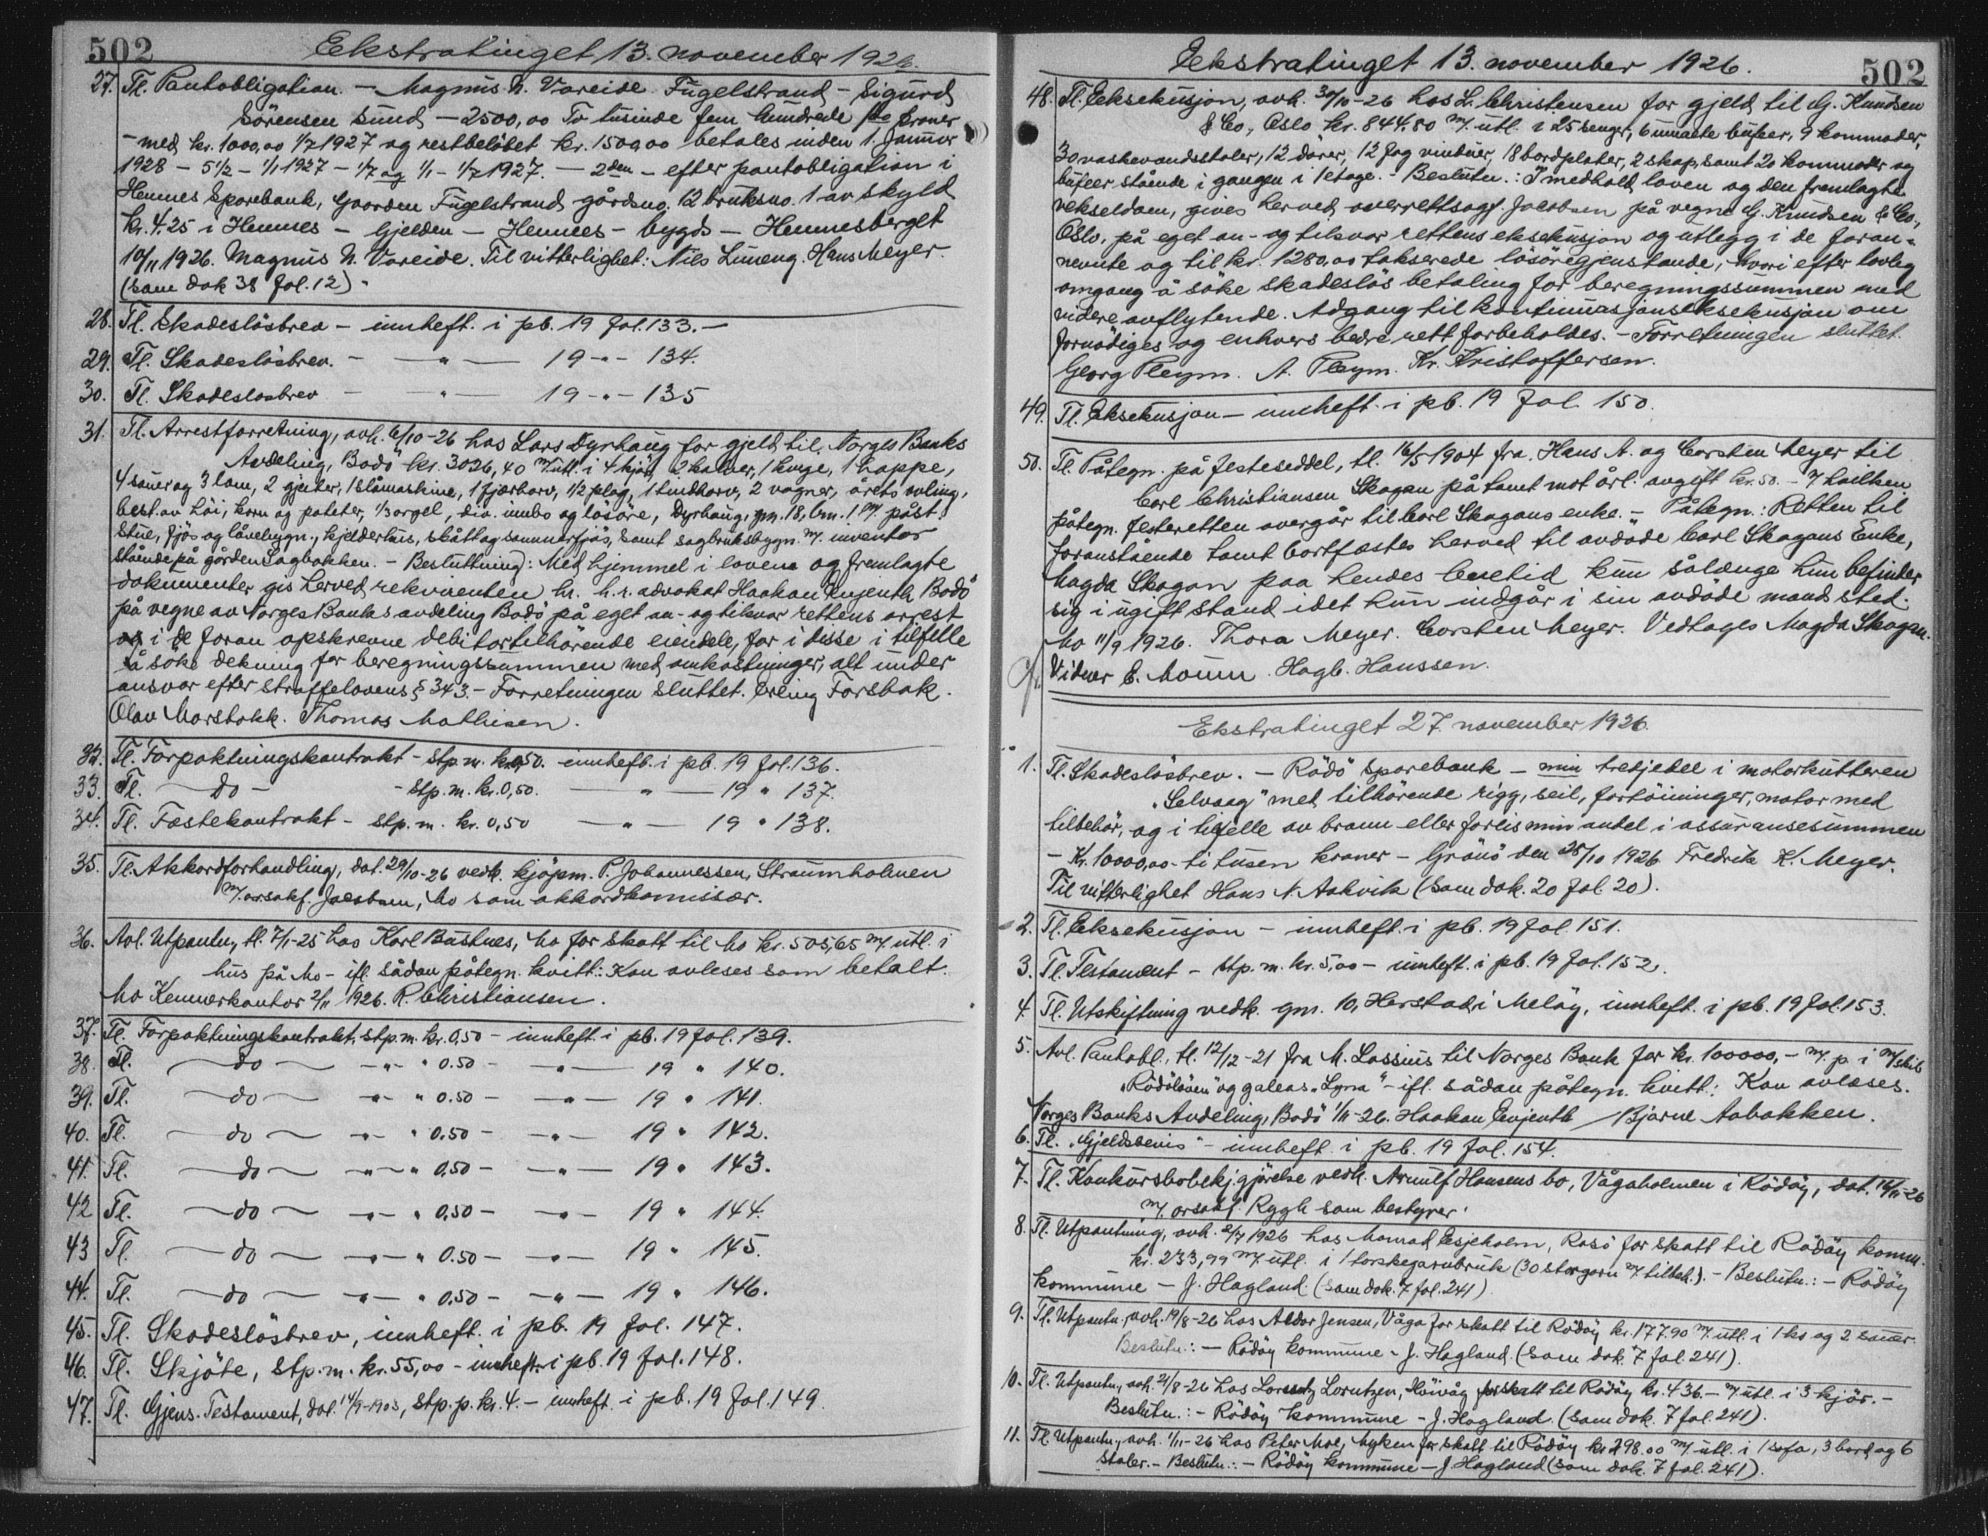 502
Ekstratinget 13. november 1926.
27. Tl. Pantobligation. — Magnus N. Vareide Fugelstrand — Sigurd
Sörensen Sund — 2500,00 To tusinde fem hundrede kroner
— med kr. 1000,00 1/7 1927 og restbelöbet kr. 1500,00 betales inden 1. Januar
1928 — 5½ — 1/1 1927 — 1/7 og 1/1 — 1/7 1927. — 2den — efter pantobligation i
Hemnes Sparebank, Gaarden Fugelstrand gårdsno. 12 bruksno. 1 av skyld
kr. 4.25 i Hemnes — Gjelden — Hemnes — bygd — Hemnesberget
10/11 1926. Magnus N. Vareide. Til vitterlighet: Nils Limeng. Hans Meyer.
(sam dok 38 fol. 12).
28. Tl. Skadeslösbrev — innheft. i pb. 19 fol. 133. —
29. Tl. Skadeslösbrev. — — " — 19 - " - 134.
30. Tl. Skadeslösbrev — — " — 19 - " - 135
31. Tl. Arrestforretning, avh. 6/10-26 hos Lars Dyrhaug for gjeld til Norges Banks
Avdeling, Bodö kr. 3026,40 m/utl. i 4 kjör, 2 kalver, 1 kvige, 1 hoppe,
4 sauer og 3 lam, 2 gjeiter, 1 slåmaskine, 1 fjærharv, 1/2 plog, 1 tindharv, 2 vogner, årets avling,
best. av höi, korn og poteter, 1/3 orgel, div. innbo og lösöre, Dyrhaug, gm. 18, bm. 1 m/ påst.
stue, fjös og låvebygn., kjelderhus, skåttag sommerfjös, samt sagbruksbygn. m/ inventar
stående på gården Sagbakken. — Besluttning: Med hjemmel i lovene og fremlagte
dokumenter gis herved rekvirenten hr. h.r. advokat Haakon Evjenth Bodö
på vegne av Norges Banks avdeling Bodö på eget an- og tilsvar rettens arrest
i de foran opskrevne debitor tilhörende eiendele, for i disse i tilfelle
å söke dekning for beregningssummen med omkostninger, alt under
ansvar efter straffelovens § 343. — Forretningen sluttet. Erling Forsbak.
Olav Marstokk. Thomas Mathisen.
32. Tl. Forpaktningskontrakt — stp. m. kr. 0,50. — innheft. i pb. 19 fol. 136.
33. Tl. — do — — stp. m. kr. 0,50. — " — 19 " 137.
34. Tl. Fæstekontrakt — stp. m. kr. 0,50 — " — 19 " 138.
35. Tl. Akkordforhandling, dat. 29/10-26 vedk. kjöpm. P. Johannessen, Straumholmen
m/ orsakf. Jacobsen, Mo som akkordkomissær.
36. Avl. Utpantn., tl. 7/1-25 hos Karl Bustnes, Mo for skatt til Mo kr. 505,65 m/ utl. i
hus på Mo — ifl. sådan påtegn. kvitt: Kan avleses som betalt.
Mo Kemnerkontor 2/11 1926. R. Christiansen.
37. Tl. Forpaktningskontrakt, stp. m. kr. 0,50 — innheft. i pb. 19 fol. 139.
38. Tl. — do — - " - " 0.50 — - " — 19 " 140.
39. Tl. — do — - " - " 0.50 — - " — 19 " 141.
40. Tl. — do — - " - " 0,50 — - " — 19 " 142.
41. Tl. — do — - " - " 0,50 — - " — 19 " 143.
42 Tl. — do — - " - " 0,50 — - " — 19 " 144.
43 Tl. — do — - " - " 0.50 — - " — 19 " 145.
44. Tl. — do — - " - " 0,50 — - " — 19 " 146.
45. Tl. Skadeslösbrev, innheft. i pb. 19 fol. 147.
46. Tl. Skjöte, stp. m. kr. 55,00 — innheft. i pb. 19 fol. 148.
47. Tl. Gjens. Testament, dat. 14/9-1903, stp. p. kr. 4. — innheft. i pb. 19 fol. 149.
Ekstratinget 13. november 1926.
502
48. Tl. Eksekusjon, avh. 30/10-26 hos L. Christensen for gjeld til G. Knudsen
& Co, Oslo kr. 844.80 m/ utl. i 25 senger, 6 umalte bufeer, 9 kommoder,
30 vaskevandsstoler, 12 dörer, 12 fag vinduer, 18 bordplater, 2 skap, samt 20 kommoder og
bufeer stående i gangen i 1 etage. — Beslutn.: I medhold loven og den fremlagte
vekseldom, gives herved overrettssagf. Jacobsen på vegne G. Knudsen & Co,
Oslo, på eget an- og tilsvar rettens eksekusjon og utlegg i de foran-
nevnte og til kr. 1280,00 takserede lösöregjenstande, hvori efter lovlig
omgang å söke skadeslös betaling for beregningssummen med
videre avflytende. Adgang til kontinuasjonseksekusjon om
fornödiges og enhvers bedre rett forbeholdes. — Forretningen sluttet.
Georg Pleym. A. Pleym. Kr. Kristoffersen.
49. Tl. Eksekusjon — innheft. i pb. 19 fol. 150.
50. Tl. Påtegn. på festeseddel, tl. 16/5-1904 fra Hans A. og Corsten Meyer til
Carl Christiansen Skogan på tomt mot årl. avgift kr. 50. — i hvilken
påtegn. festeretten overgår til Carl Skogans enke. — Påtegn.: Retten til
foranstående tomt bortfæstes herved til avdöde Carl Skogans Enke,
Magda Skogan paa hendes levetid kun sålænge hun befinder
sig i ugift stand idet hun indgår i sin avdöde mands sted.
Mo 11/9 1926. Thora Meyer. Corsten Meyer. Vedtages Magda Skogan.
Vidner E. Moum. Hagb. Hanssen.
Ekstratinget 27. november 1926.
1. Tl. Skadeslösbrev. — Rödö Sparebank — min tredjedel i motorkutteren
"Selvaag" med tilhörende rigg, seil, fortöininger, motor med
tilbehör, og i tilfelle av brann eller forlis min andel i assuransesummen
— Kr. 10000,00 — ti tusen kroner — Grönö den 28/10 1926 Fredrik K. Meyer.
Til vitterlighet Hans N. Aakvik (sam dok. 20 fol. 20).
2. Tl. Eksekusjon — innheft. i pb. 19 fol. 151.
3. Tl. Testament — stp. m. kr. 5,00 — innheft. i pb. 19 fol. 152.
4. Tl. Utskiftning vedk. gm. 10, Herstad i Melöy, innheft. i pb. 19 fol. 153.
5. Avl. Pantobl., tl. 12/12-21 fra M. Lossius til Norges Bank for kr. 100000, — m/ p. i m/skib
"Rödölöven" og galeas "Lyra" — ifl. sådan påtegn. kvitt: Kan avleses.
Norges Banks Avdeling, Bodö 1/11-26. Haakon Evjenth / Bjarne Aabakken.
6. Tl. "Gjeldsbevis" — innheft. i pb. 19 fol. 154.
7. Tl. Konkursbobekjgjörelse vedk. Arnulf Hansens bo, Vågaholmen i Rödöy, dat. 16/11-26
m/ orsakf. Rygh som bestyrer.
8. Tl. Utpantning, avh. 2/7 1926 hos Monrad Esjeholm, Rasö for skatt til Rödöy komm.
kr. 233,99 m/ utl. i 1 torskegarnbruk (30 st garn m/ tilbeh.). — Beslutn.: — Rödöy
kommune — J. Hagland. (sam dok. 7 fol. 241)
9. Tl. Utpantn., avh. 19/8-26 hos Aldor Jensen, Våga for skatt til Rödöy kr. 177.90 m/ utl. i 1 ko og 2 sauer.
Beslutn.: — Rödöy kommune — J. Hagland. (sam dok. 7 fol. 241).
10. Tl. Utpantn., avh. 21/8-26 hos Lorentz Lorntzen, Höivåg for skatt til Rödöy kr. 436. — m/ utl. i 3 kjör. —
Beslutn.: — Rödöy kommune — J. Hagland. (sam dok. 7 fol. 241).
11. Tl. Utpantn., avh. 1/11-26 hos Peter Moe, Myken for skatt til Rödöy kr. 298.00 m/ utl. i 1 sofa, 3 bord og 6
stoler. — Beslutn.: — Rödöy kommune — J. Hagland (sam dok. 7 fol. 241).